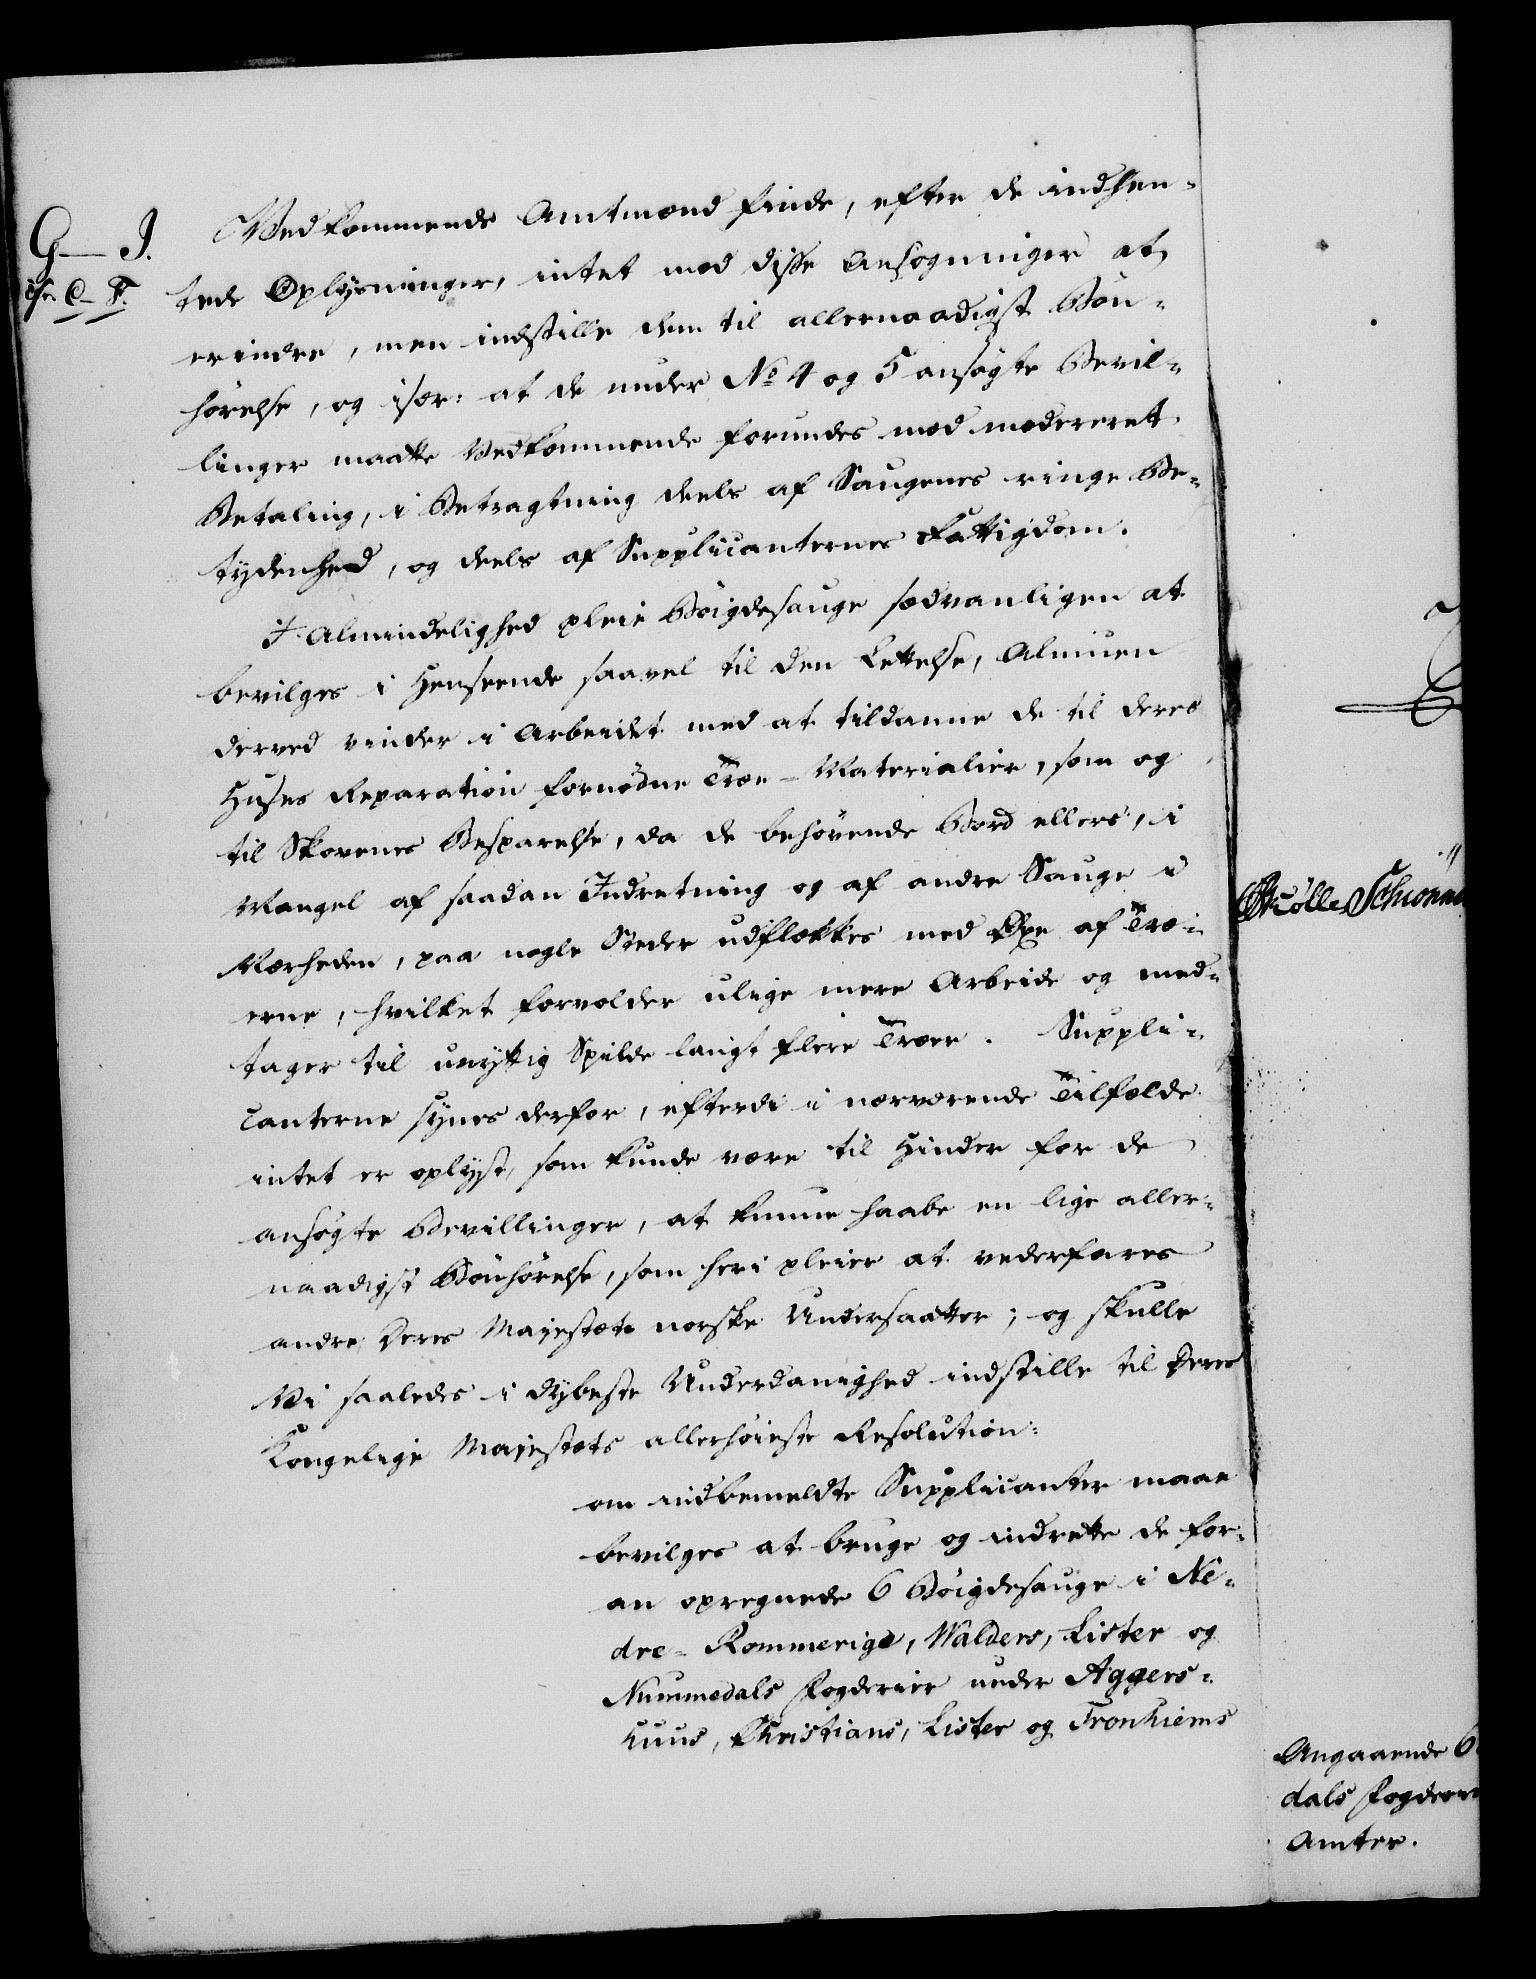 G — I.
cfr. C – F.
Vedkommende Amtmænd finde, efter de indhen-
tede Oplysninger, intet mod disse Ansøgninger at
erindre, men indstille dem til allernaadigst Bøn-
hørelse, og især: at de under No 4 og 5 ansøgte Bevil-
linger maatte Vedkommende forundes mod modereret
Betaling, i Betragtning deels af Saugenes ringe Be-
tydenhed, og deels af Supplicanternes Fattigdom.
I Almindelighed pleie Bøigdesauge sædvanligen at
bevilges i Henseende saavel til den Lettelse, Almuen
derved vinder i Arbeidet med at tildanne de til deres
Huses Reparation fornødne Træe-Materialier, som og
til Skovenes Besparelse, da de behøvende Bord ellers, i
Mangel af saadan Indretning og af andre Sauge i
Nærheden, paa nogle Steder udflækkes med Øxe af Træ-
erne, hvilket forvolder ulige mere Arbeide og med-
tager til unyttig Spilde langt fleire Træer. Suppli-
canterne synes derfor, efterdi i nærværende Tilfælde
intet er oplyst, som kunde være til Hinder for de
ansøgte Bevillinger, at kunne haabe en lige aller-
naadigst Bønhørelse, som heri pleier at vederfares
andre Deres Majestæts norske Undersaatter; og skulle
Vi saaledes i dybeste Underdanighed indstille til Deres
Kongelige Majestæts allerhøieste Resolution:
om indbemeldte Supplicanter maae
bevilges at bruge og indrette de for-
an opregnede 6 Bøigdesauge i Ne-
dre-Rommerige, Walders, Lister og
Nummedals Fogderier under Aggers-
huus, Christians, Lister og Tronhiems
Schiønne
Angaaende 6
dals Fogderie
Amter.